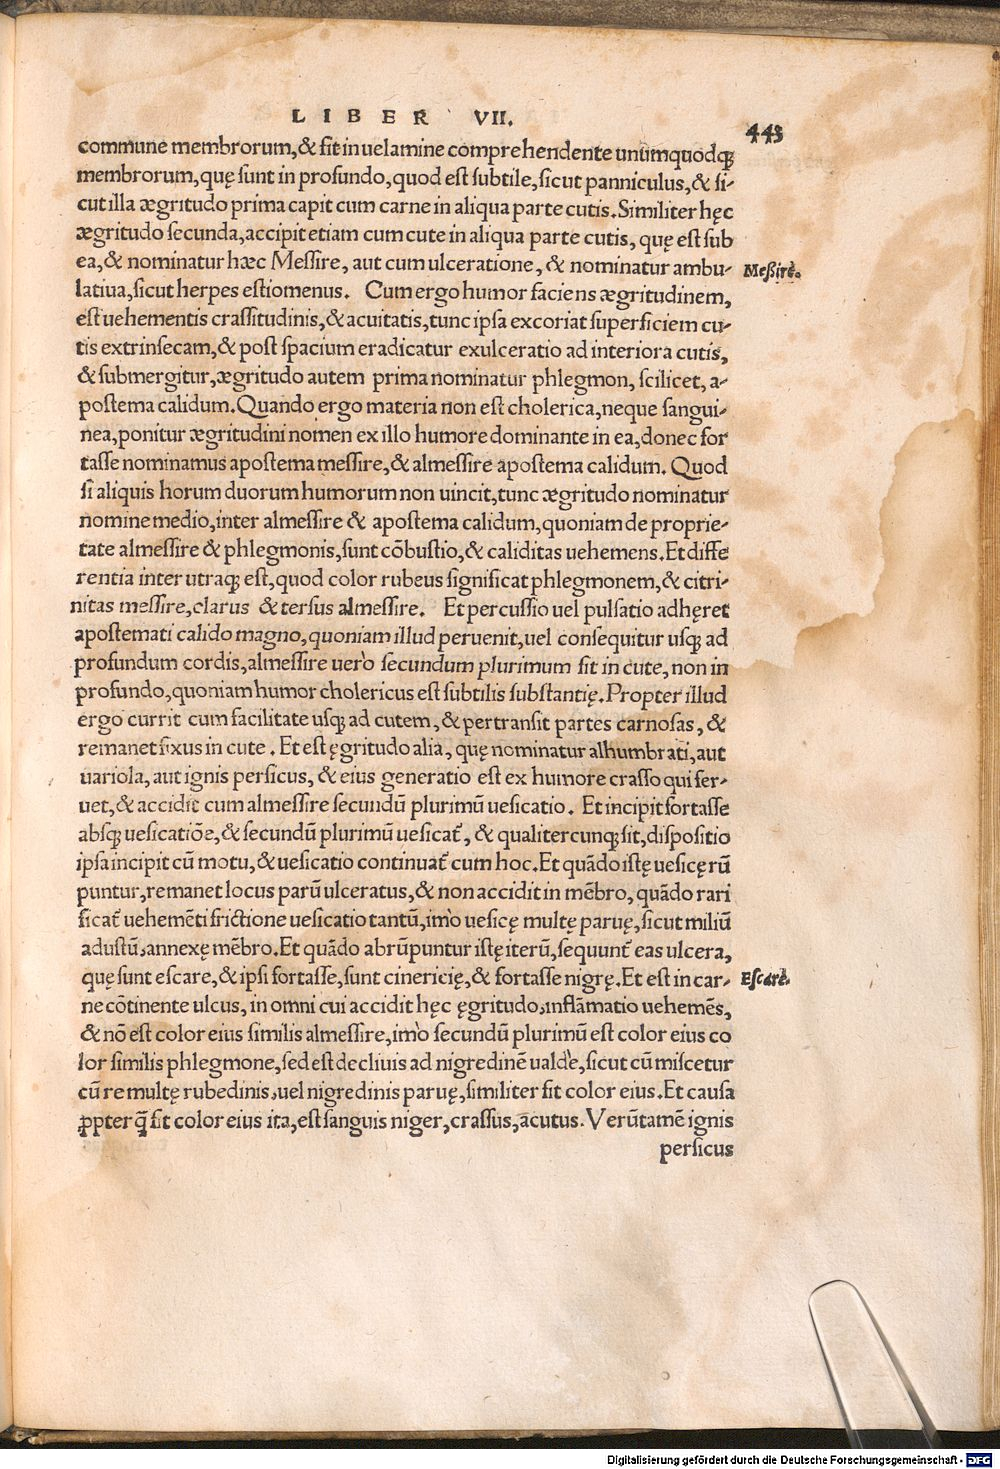 LIBER VII.
443
commune membrorum,& fit in uelamine comprehendente unumquodq;
membrorum,quę sunt in profundo,quod est subtile,sicut panniculus,& si-
cut illa ægritudo prima capit cum carne in aliqua parte cutis.Similiter hęc
ægritudo secunda,accipit etiam cum cute in aliqua parte cutis, quę est sub
ea,& nominatur hæc Messire, aut cum ulceratione, & nominatur ambu-
Meßirè.
latiua,sicut herpes estiomenus. Cum ergo humor faciens ægritudinem,
est uehementis crassitudinis,& acuitatis,tunc ipsa excoriat superficiem cu-
tis extrinsecam,& post spacium eradicatur exulceratio ad interiora cutis,
& submergitur,ægritudo autem prima nominatur phlegmon, scilicet, a-
postema calidum.Quando ergo materia non est cholerica,neque sangui-
nea,ponitur ægritudini nomen ex illo humore dominante in ea,donec for
tasse nominamus apostema messire,& almessire apostema calidum. Quod
si aliquis horum duorum humorum non uincit,tunc ægritudo nominatur
nomine medio,inter almessire & apostema calidum,quoniam de proprie-
tate almessire & phlegmonis,sunt cōbustio,& caliditas uehemens.Et diffe
rentia inter utraq; est,quod color rubeus significat phlegmonem,& citri-
nitas messire,clarus & tersus almessire. Et percussio uel pulsatio adhęret
apostemati calido magno,quoniam illud peruenit,uel consequitur usq; ad
profundum cordis,almessire uerò secundum plurimum fit in cute,non in
profundo,quoniam humor cholericus est subtilis substantię.Propter illud
ergo currit cum facilitate usq; ad cutem,& pertransit partes carnosas,&
remanet fixus in cute. Et est ęgritudo alia, quę nominatur alhumbrati,aut
uariola, aut ignis persicus, & eius generatio est ex humore crasso qui fer-
uet,& accidit cum almessire secundū plurimū uesicatio. Et incipit fortasse
absq; uesicatiōe,& secundū plurimū uesicat̄, & qualitercunq; sit,dispositio
ipsa incipit cū motu,& uesicatio continuat̄ cum hoc.Et quādo istę uesicę rū
puntur,remanet locus parū ulceratus,& non accidit in mēbro, quādo rari
ficat̄ uehemēti frictione uesicatio tantū,imò uesicę multę paruę,sicut miliū
adustū,annexę mēbro.Et quādo abrūpuntur istę iterū,sequunt̄ eas ulcera,
quę sunt escare,& ipsi fortasse,sunt cinericię,& fortasse nigrę.Et est in car-
Escarè.
ne cōtinente ulcus, in omni cui accidit hęc ęgritudo,inflāmatio uehemēs,
& nō est color eius similis almessire,imò secundū plurimū est color eius co
lor similis phlegmone,sed est decliuis ad nigredinē ualdè,sicut cū miscetur
cū re multę rubedinis,uel nigredinis paruę,similiter fit color eius.Et causa
ꝓpter quā fit color eius ita,est sanguis niger,crassus,acutus.Verūtamē ignis
persicus
Digitalisierung gefördert durch die Deutsche Forschungsgemeinschaft - DFG